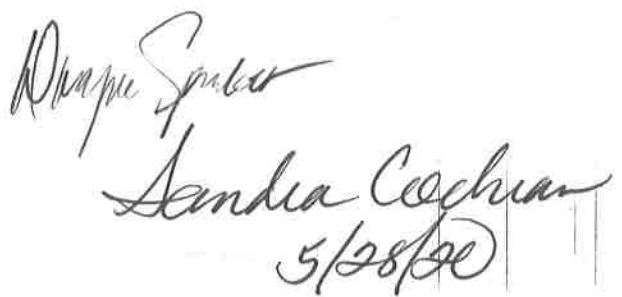 Dwayne
Sandra Cochran
5/28/20